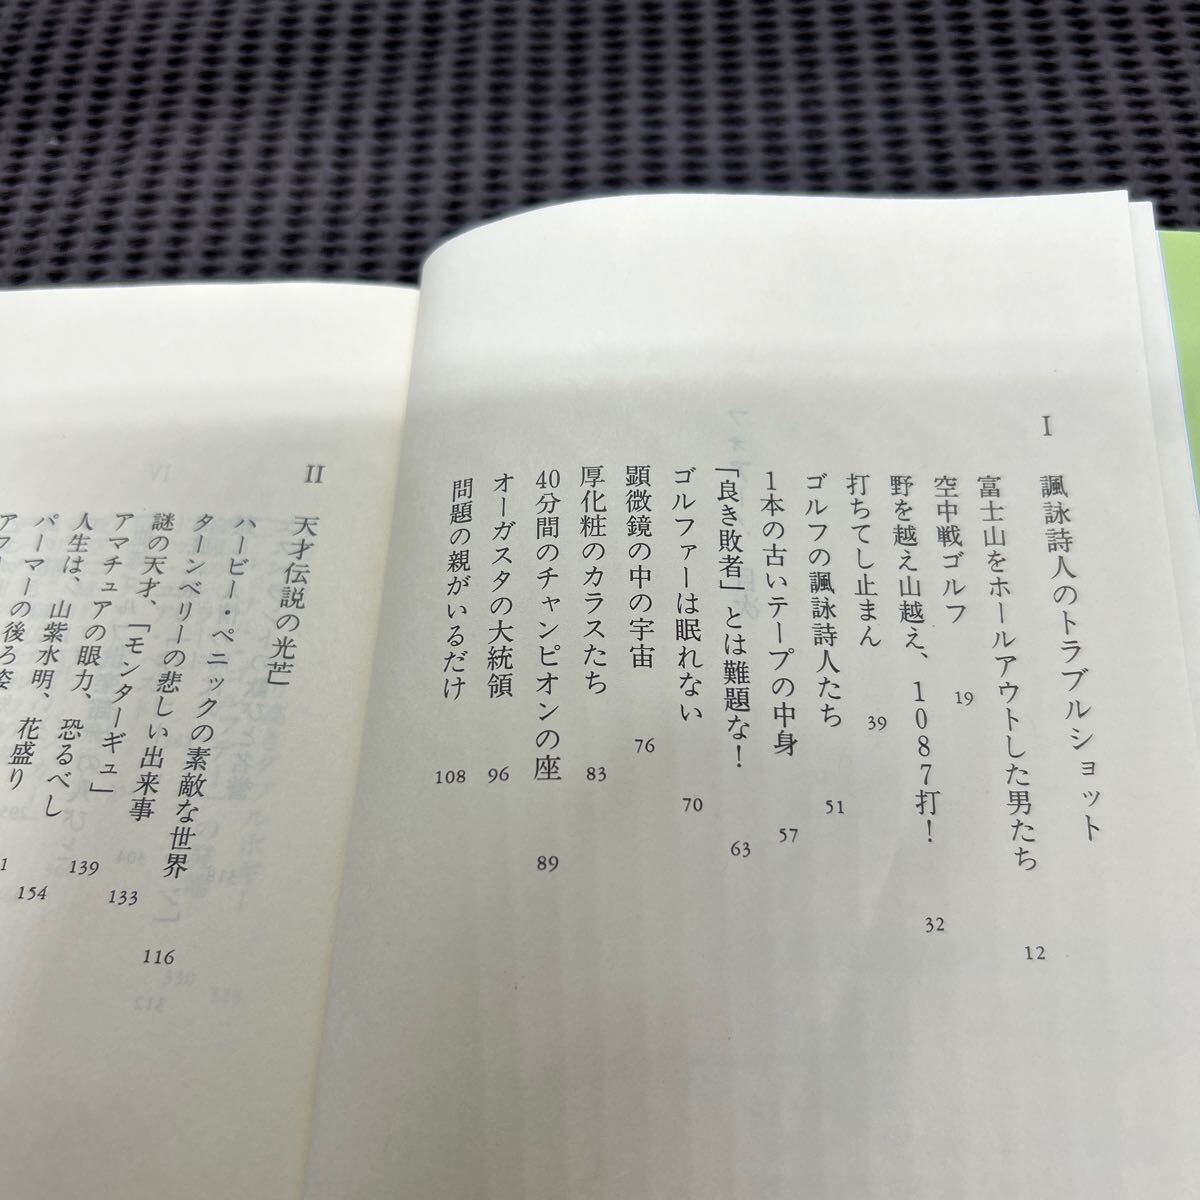 I 諷詠詩人のトラブルショット
富士山をホールアウトした男たち 12
空中戦ゴルフ 19
野を越え山越え、1087打! 32
打ちてし止まん 39
ゴルフの諷詠詩人たち 51
1本の古いテープの中身 57
「良き敗者」とは難題な! 63
ゴルファーは眠れない 70
顕微鏡の中の宇宙 76
厚化粧のカラスたち 83
40分間のチャンピオンの座 89
オーガスタの大統領 96
問題の親がいるだけ 108
II 天才伝説の光芒
ハービー・ペニックの素敵な世界 116
ターンベリーの悲しい出来事
謎の天才、「モンターギュ」 133
アマチュアの眼力、恐るべし 139
人生は、山紫水明、花盛り 154
パーマーの後ろ姿